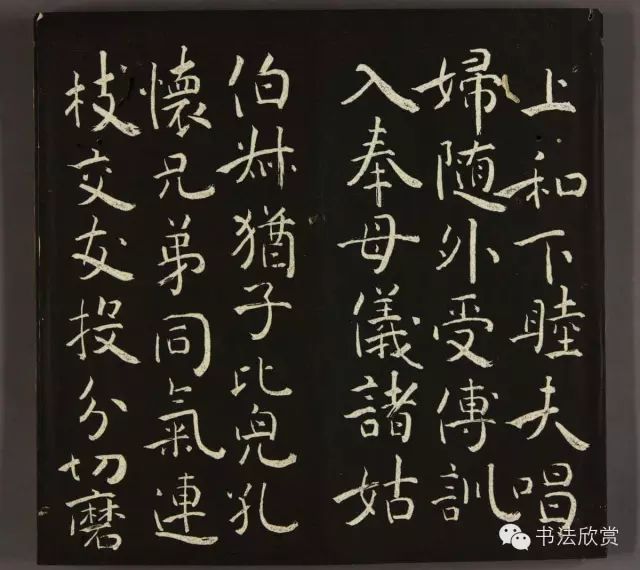 上和下睦夫唱
婦随外受傅訓
入奉母儀諸姑
伯叔猶子比兒孔
懷兄弟同氣連
枝交友投分切磨
书法欣赏